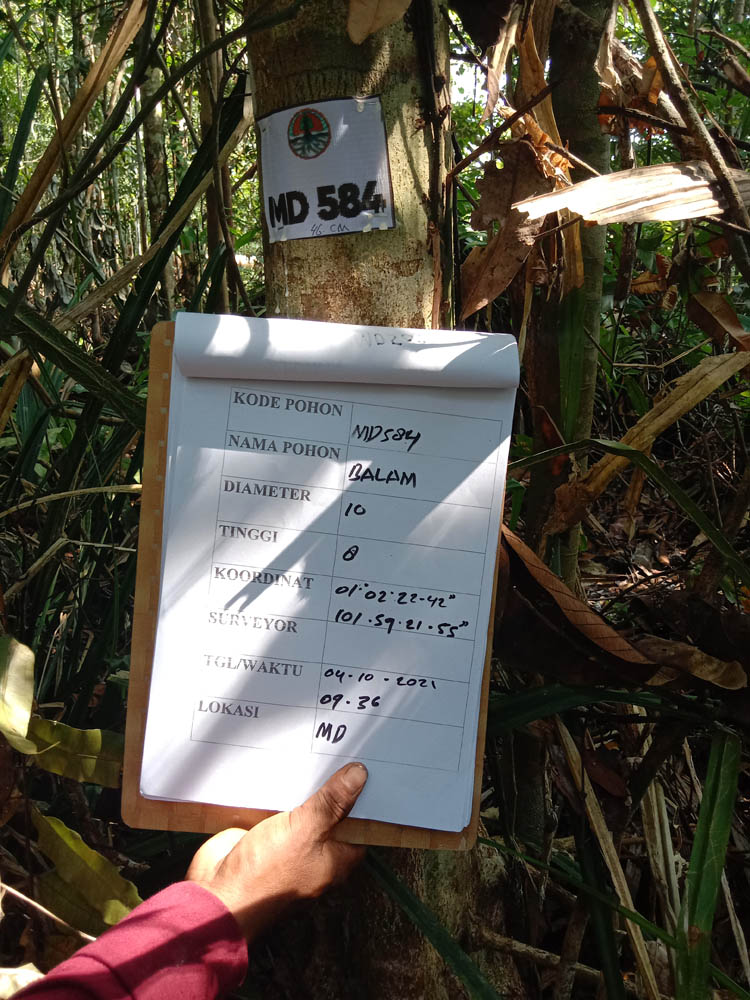 MD 584
46 CM
KODE POHON MD584
NAMA POHON BALAM
DIAMETER 10
TINGGI 8
KOORDINAT 01°02'22.42"
101.59.21.55"
SURVEYOR
TGL/WAKTU 04.10.2021
09.36
LOKASI MD